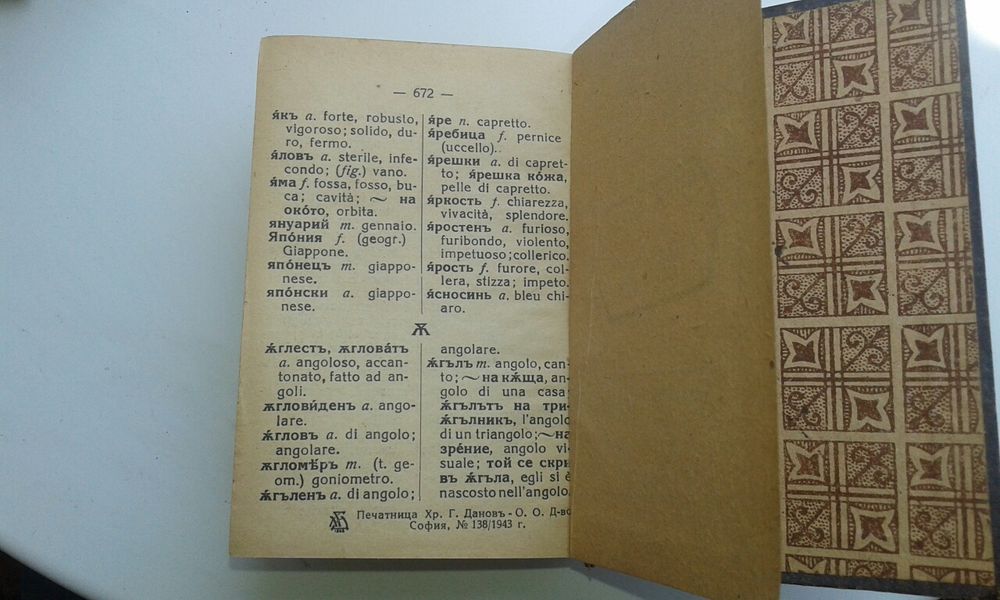 — 672 —
я́къ a. forte, robusto,
vigoroso; solido, du-
ro, fermo.
я́ловъ a. sterile, infe-
condo; (fig.) vano.
я́ма f. fossa, fosso, bu-
ca; cavità; ~ на
око́то, orbita.
януарий m. gennaio.
Япо́ния f. (geogr.)
Giappone.
япо́нецъ m. giappo-
nese.
япо́нски a. giappo-
nese.
я́ре n. capretto.
я́ребица f. pernice
(uccello).
я́решки a. di capret-
to; я́решка ко́жа,
pelle di capretto.
я́ркость f. chiarezza,
vivacità, splendore.
я́ростенъ a. furioso,
furibondo, violento,
impetuoso; collerico.
я́рость f. furore, col-
lera, stizza; impeto.
я́сносинь a. bleu chi-
aro.
Ѫ
ѫ́глестъ, ѫглова́тъ
a. angoloso, accan-
tonato, fatto ad an-
goli.
ѫглови́денъ a. ango-
lare.
ѫ́гловъ a. di angolo;
angolare.
ѫгломѣ́ръ m. (t. ge-
om.) goniometro.
ѫ́гъленъ a. di angolo;
angolare.
ѫ́гълъ m. angolo, can-
to; ~ на кѫ́ща, an-
golo di una casa
ѫ́гълътъ на три-
ѫ́гълникъ, l'angolo
di un triangolo; ~ на
зре́ние, angolo vi-
suale; той се скри
въ ѫ́гъла, egli si è
nascosto nell'angolo.
Печатница Хр. Г. Дановъ - О. О. Д-во
София, № 138/1943 г.